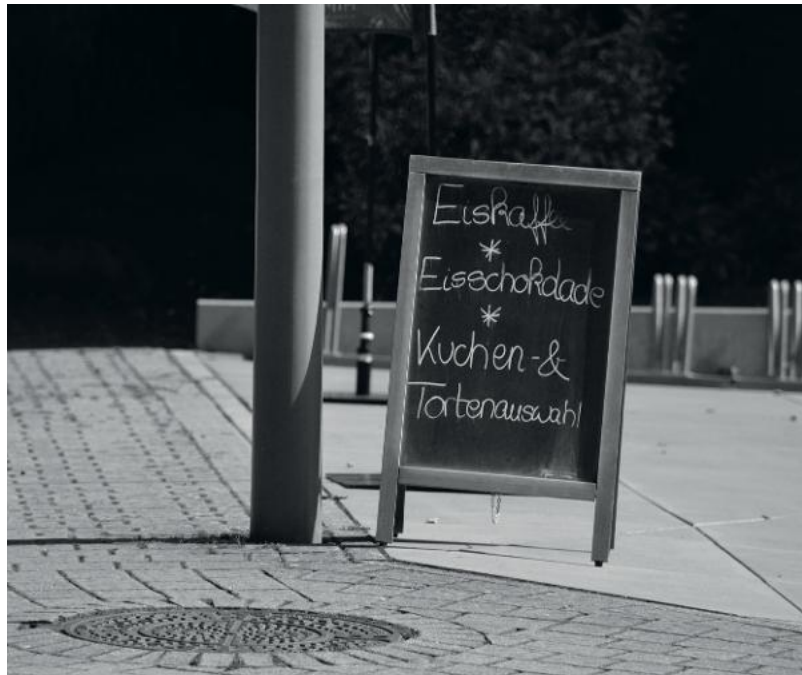 Eiskaffee
*
Eisschokolade
*
Kuchen-&
Tortenauswahl